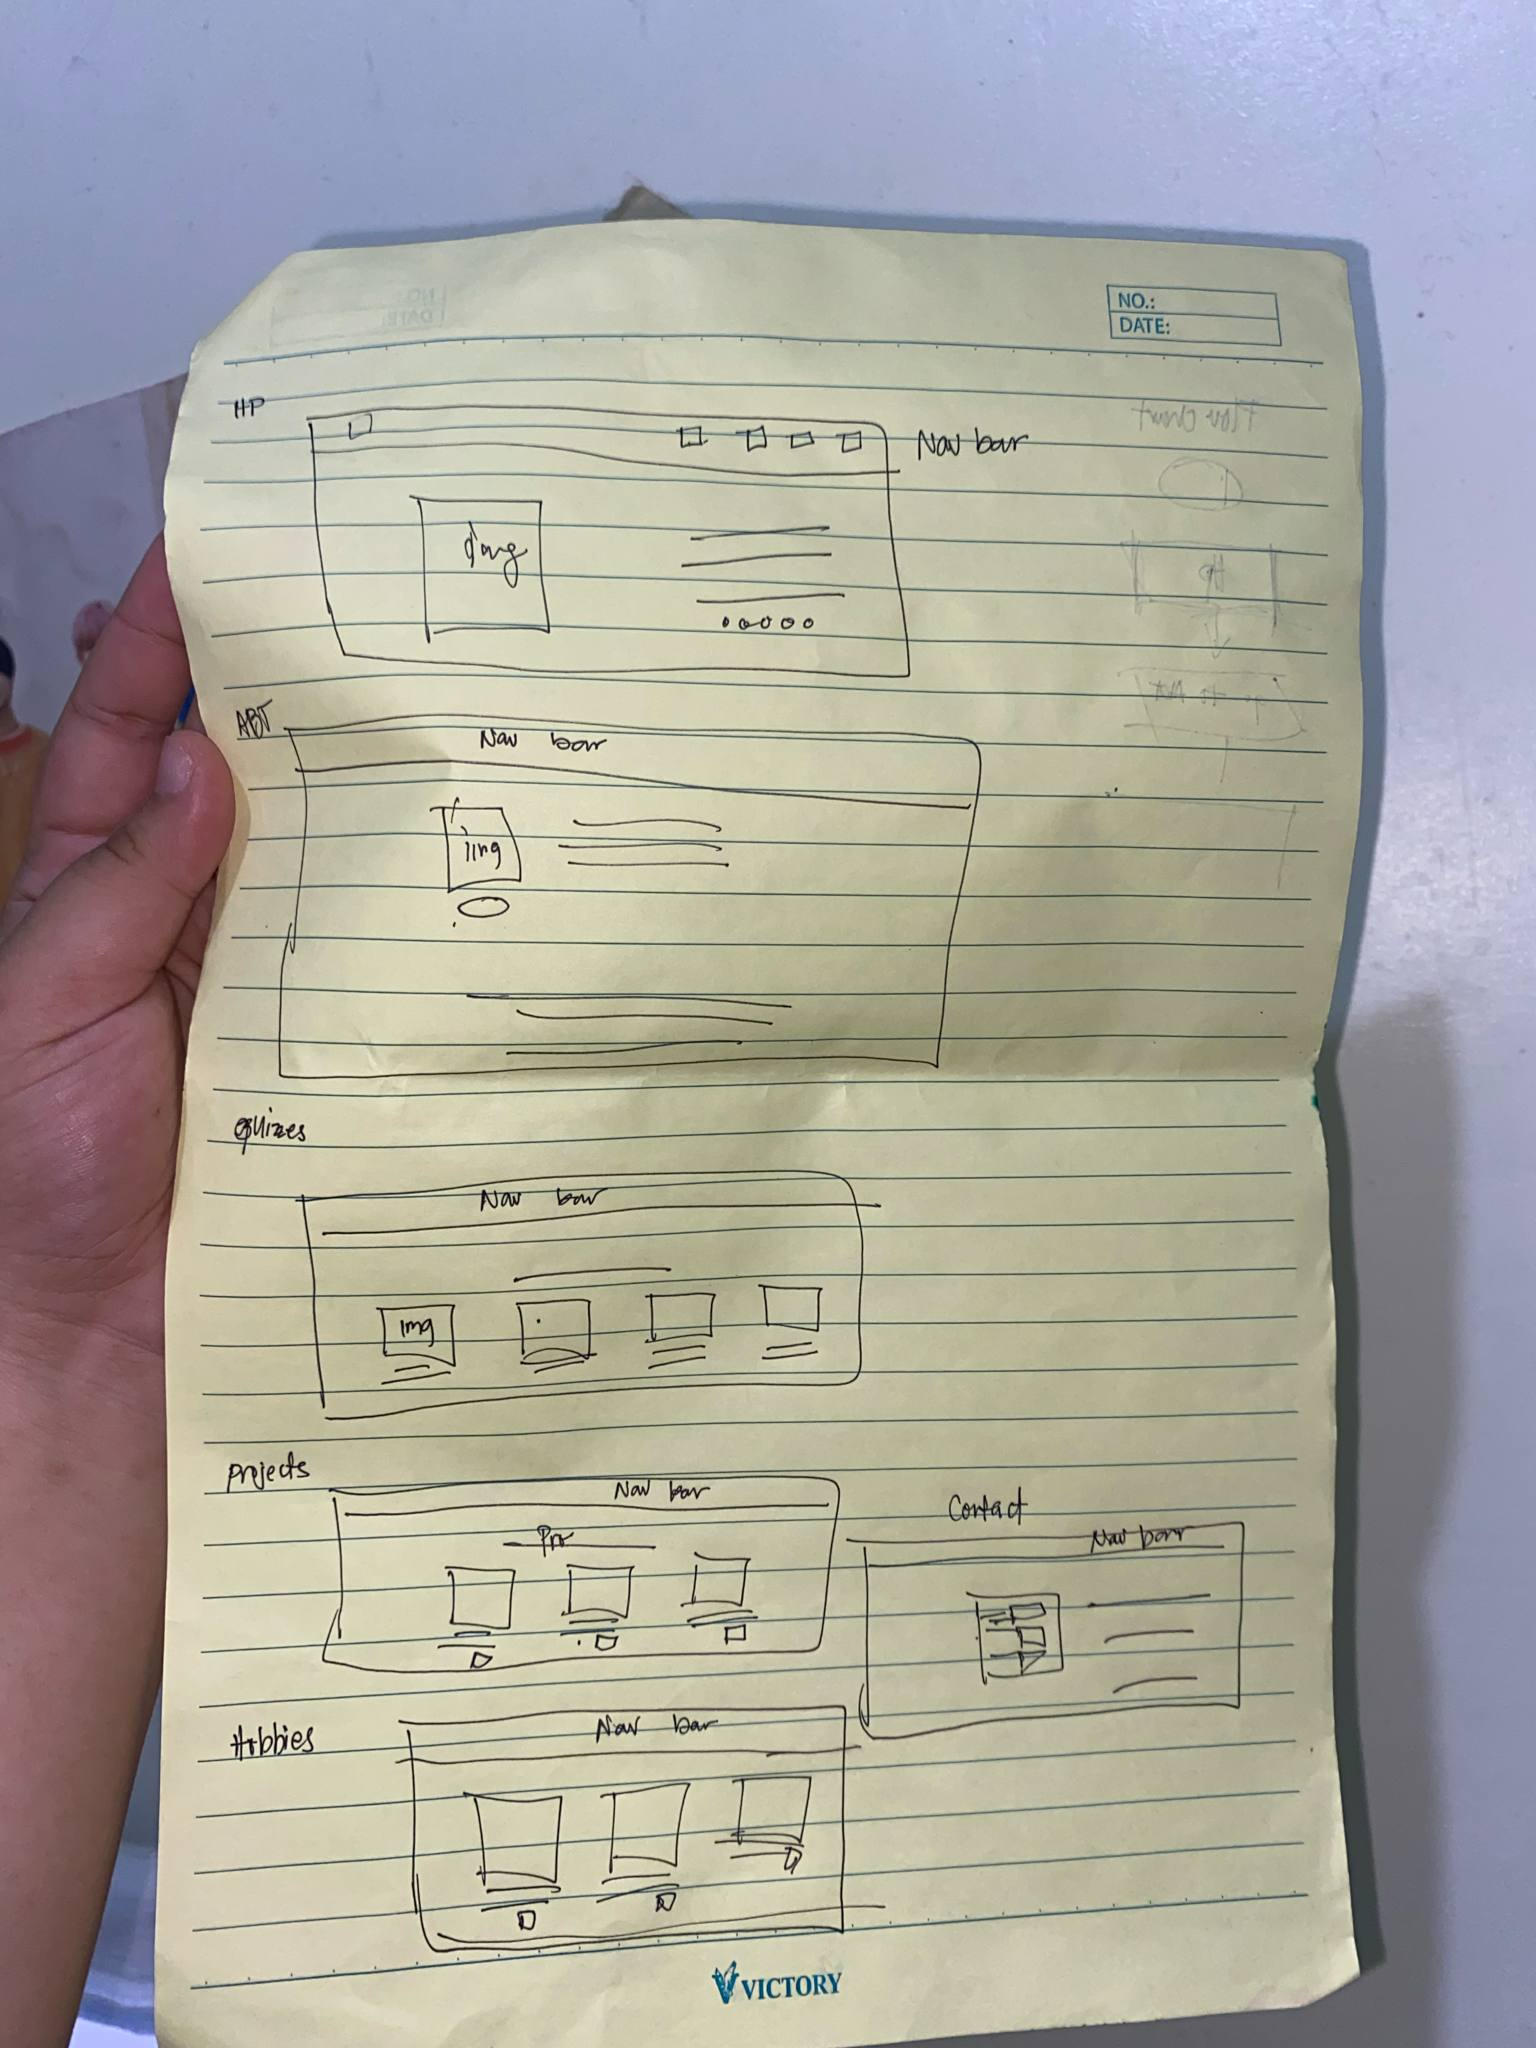 NO.:
DATE:
HP
Nav bar
ABT
Nav bar
img
Quizes
Nav bar
img
Projects
Nav bar
Contact
Nav barr
Hobbies
Nav bar
VICTORY